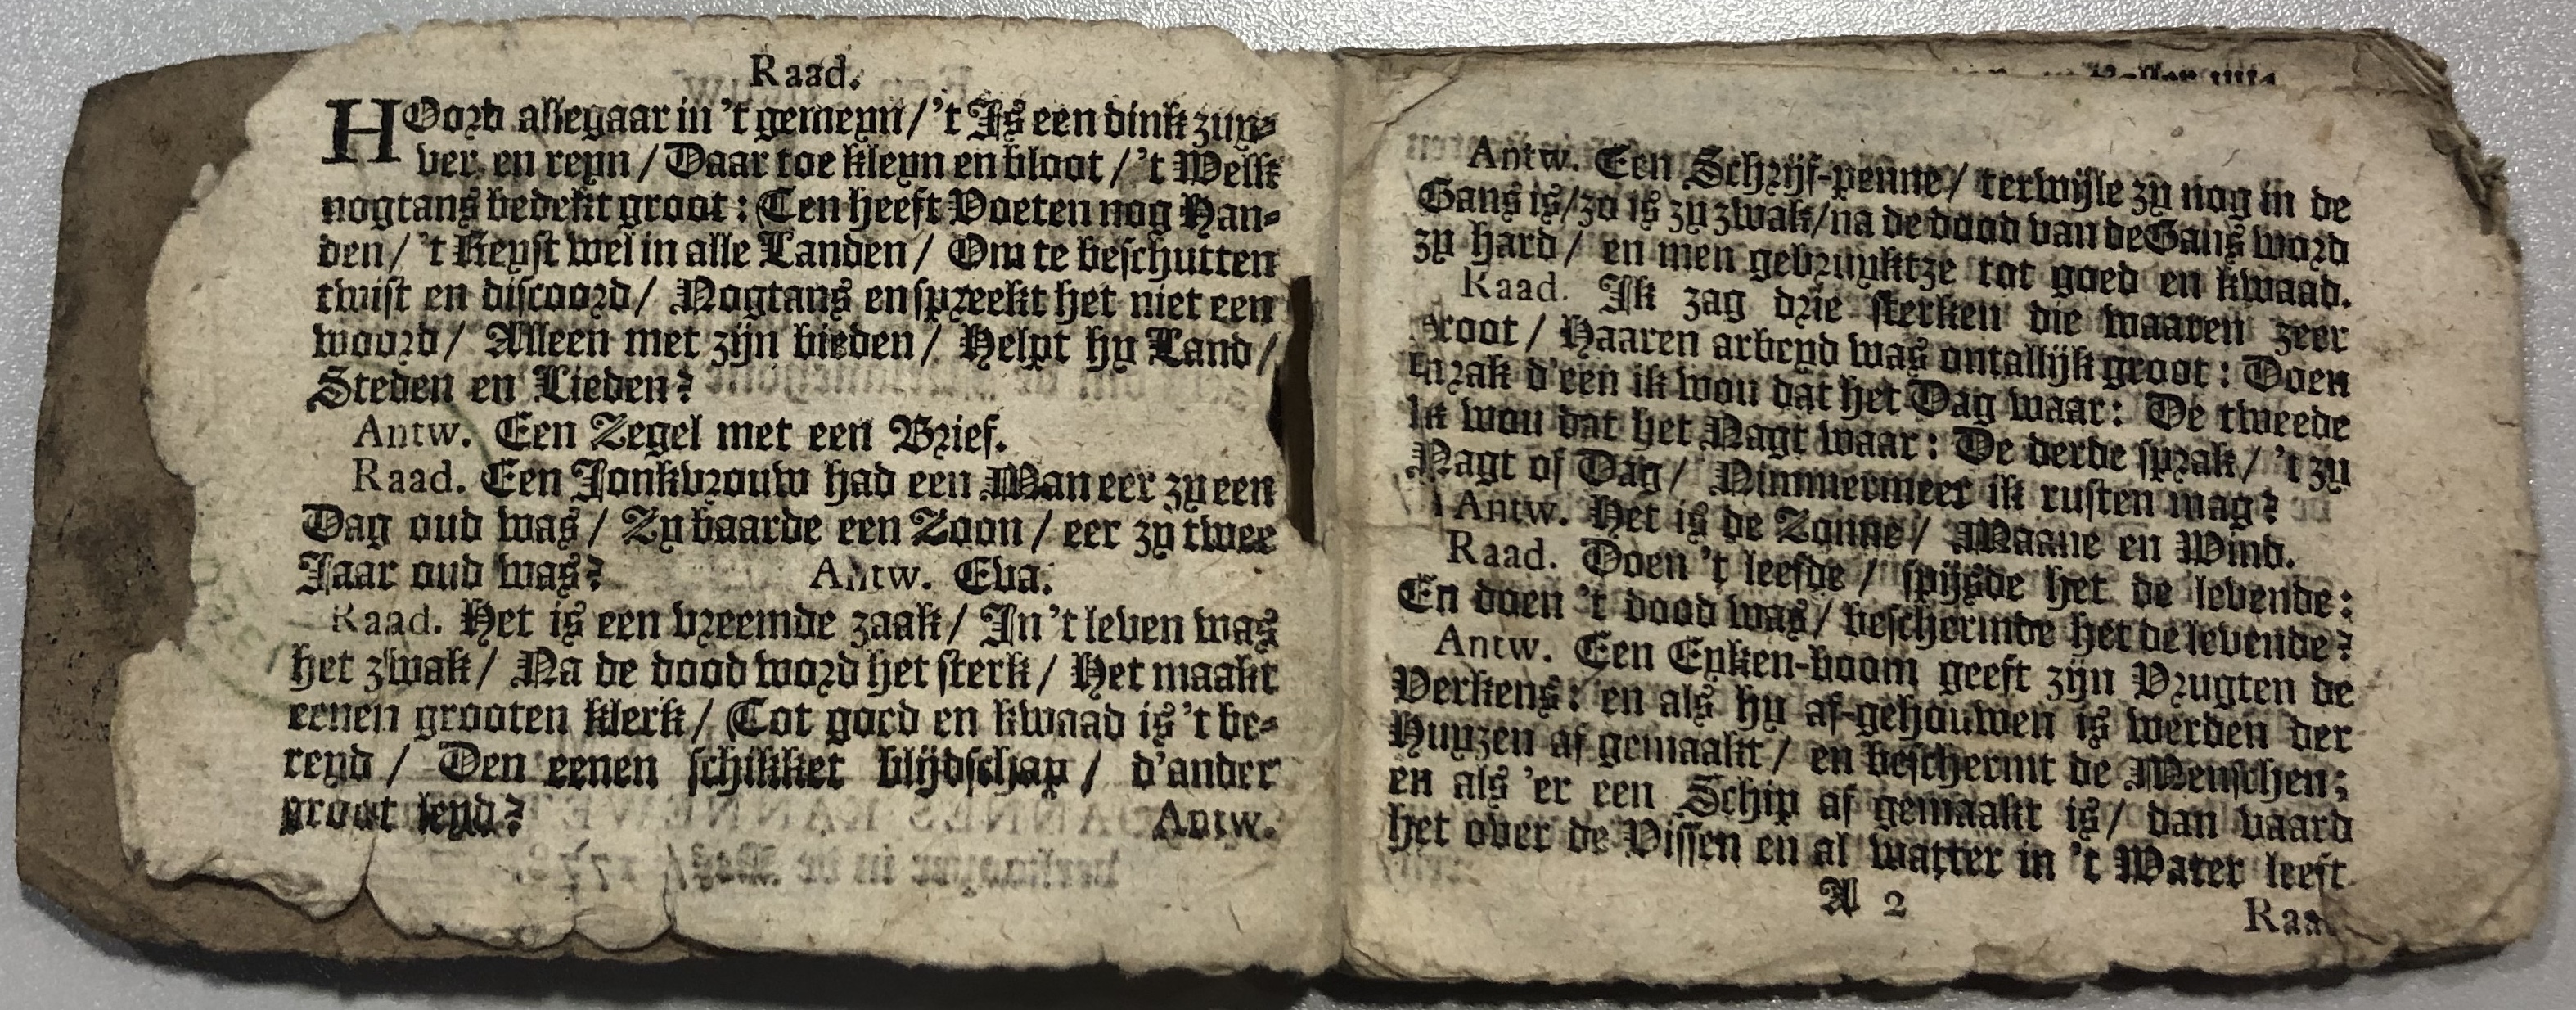 Raad.
HOord allegaar in 't gemeyn / 't Is een dink zuy-
ver en reyn / Daar toe kleyn en bloot / 't Welk
nogtans bedekt groot : Ten heeft Voeten nog Han-
den / 't Reyst wel in alle Landen / Om te beschutten
twist en discoord / Nogtans en spreekt het niet een
woord / Alleen met zijn bieden / Helpt hy Land /
Steden en Lieden?
Antw. Een Zegel met een Brief.
Raad. Een Jonkvrouw had een Man eer zy een
Dag oud was / Zy baarde een Zoon / eer zy twee
Jaar oud was? Antw. Eva.
Raad. Het is een vreemde zaak / In 't leven was
het zwak / Na de dood word het sterk / Het maakt
eenen grooten klerk / Tot goed en kwaad is 't be-
reyd / Den eenen schikket blijdschap / d'ander
groot leyd?
Antw.
Antw. Een Schrijf-penne / terwijle zy nog in de
Gans is / zo is zy zwak / na de dood van de Gans word
zy hard / en men gebruyktze tot goed en kwaad.
Raad. Ik zag drie sterken die waaren zeer
root / Haaren arbeyd was ontallijk groot : Doen
sprak d'een ik wou dat het Dag waar : De tweede
Ik wou dat het Nagt waar : De derde sprak / 't zy
Nagt of Dag / Nimmermeer ik rusten mag?
Antw. Het is de Zonne / Maane en Wind.
Raad. Doen 't leefde / spijsde het de levende :
En doen 't dood was / beschermde het de levende?
Antw. Een Eyken-boom geeft zijn Vrugten de
Verkens : en als hy af-gehouwen is werden der
Huyzen af gemaakt / en beschermt de Menschen ;
en als 'er een Schip af gemaakt is / dan vaard
het over de Vissen en al watter in 't Water leeft
A 2
Raa